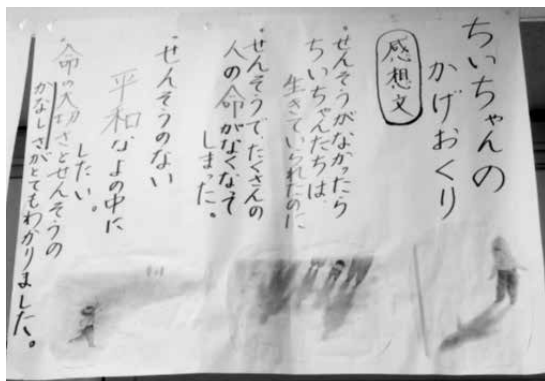 ちいちゃんの
かげおくり
感想文
・せんそうがなかったら
ちいちゃんたちは、
生きていられたのに
・せんそうで、たくさんの
人の命がなくなって
しまった。
・せんそうのない
平和なよの中に
したい。
・命の大切さとせんそうの
かなしさがとてもわかりました。